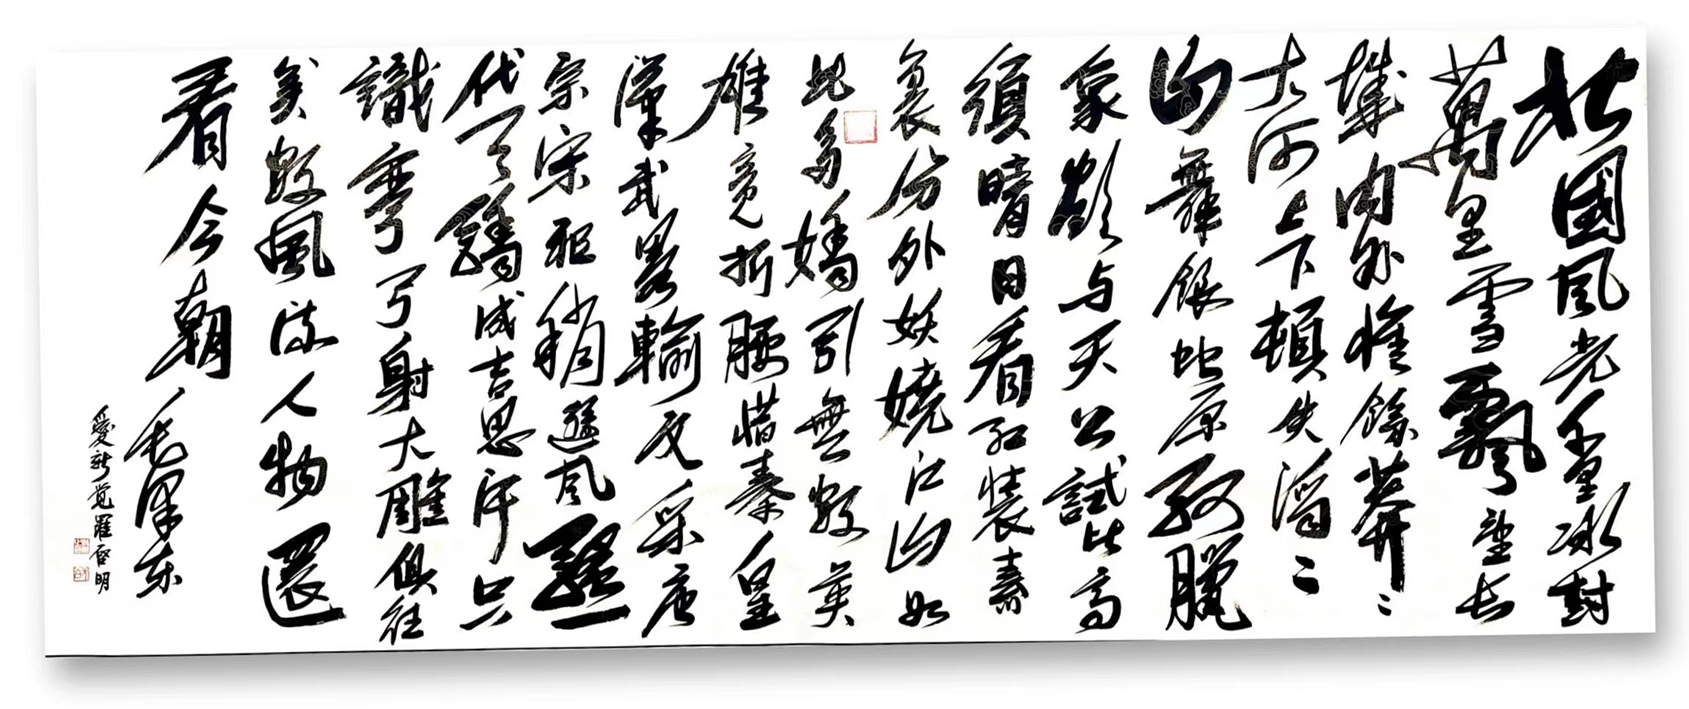 北國風光千里冰封
萬里雪飄望长
城内外惟餘莽々
大河上下頓失滔々
山舞銀蛇原馳臘
象欲与天公試比高
須晴日看红裝素
裹分外妖嬈江山如
此多嬌引無數英
雄竞折腰惜秦皇
漢武略輸文采唐
宗宋祖稍遜風騷一
代天驕成吉思汗只
識彎弓射大雕俱往
矣數風流人物還
看今朝
毛泽东
愛新覚羅啓明